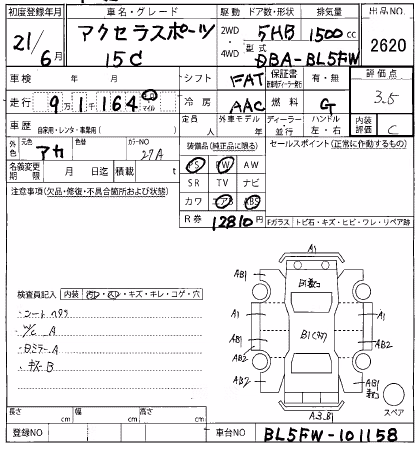 初度登録年月 車名・グレード 駆動 ドア数・形状 排気量 出品NO
21/6月 アクセラスポーツ 15C 2WD 4WD 5HB 1500cc 2620
型式 DBA-BL5FW
車検 年 月 シフト FAT 保証書 有・無 評価点 3.5
走行 9万1千164 km マイル 冷房 AAC 燃料 G
車歴 自家用・レンタ・事業用( ) 定員 人 外車モデル 年 ディーラー・並行 ハンドル 左・右 内装評価 C
外色 元色 アカ 色替 カラーNO 27A 装備品(純正品に限る) セールスポイント(正常に作動するもの)
PS PW AW
名義変更期限 月 日迄 積載 t SR TV ナビ
注意事項(欠品・修復・不具合箇所および状態) カワ エアB ABS
R券 12810円 Fガラス トビ石・キズ・ヒビ・ワレ・リペア跡
検査員記入 内装 汚レ・スレ・キズ・キレ・コゲ・穴
・シートヘタリ
・W/C A
・日ミラー A
・キズ B
A1
AB1 AB1
A1 A1
B1(ヤネ)
AB1 AB2
AB2
AB2 AB1
A3.B
スペア
長さ cm 幅 cm 高さ cm
登録NO 車台NO BL5FW-101158